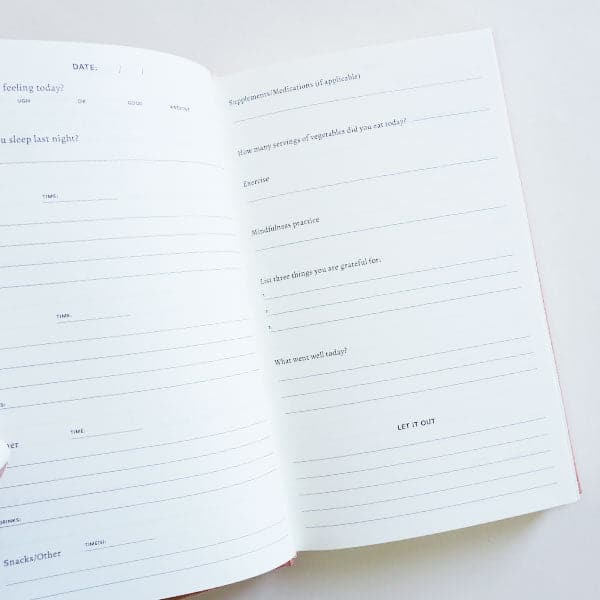 DATE: / /
feeling today?
UGH OK GOOD AWESOME
u sleep last night?
TIME:
TIME:
S:
ner
TIME:
DRINKS:
Snacks/Other
TIME(S):
Supplements/Medications (if applicable)
How many servings of vegetables did you eat today?
Exercise
Mindfulness practice
List three things you are grateful for:
1.
2.
3.
What went well today?
LET IT OUT